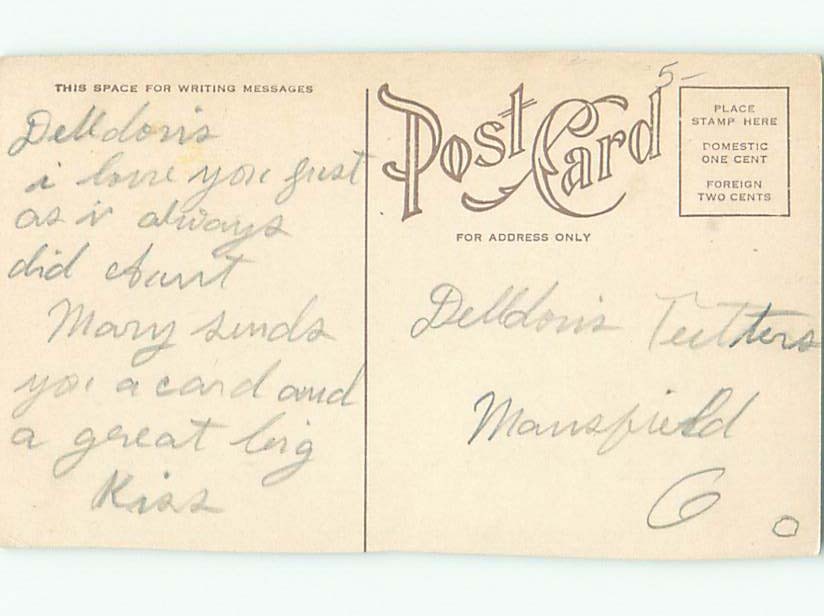 THIS SPACE FOR WRITING MESSAGES
Delldoris
i love you just
as i always
did Aunt
Mary sends
you a card and
a great big
Kiss
Post Card
5-
PLACE
STAMP HERE
DOMESTIC
ONE CENT
FOREIGN
TWO CENTS
FOR ADDRESS ONLY
Delldoris Teetters
Mansfield
O